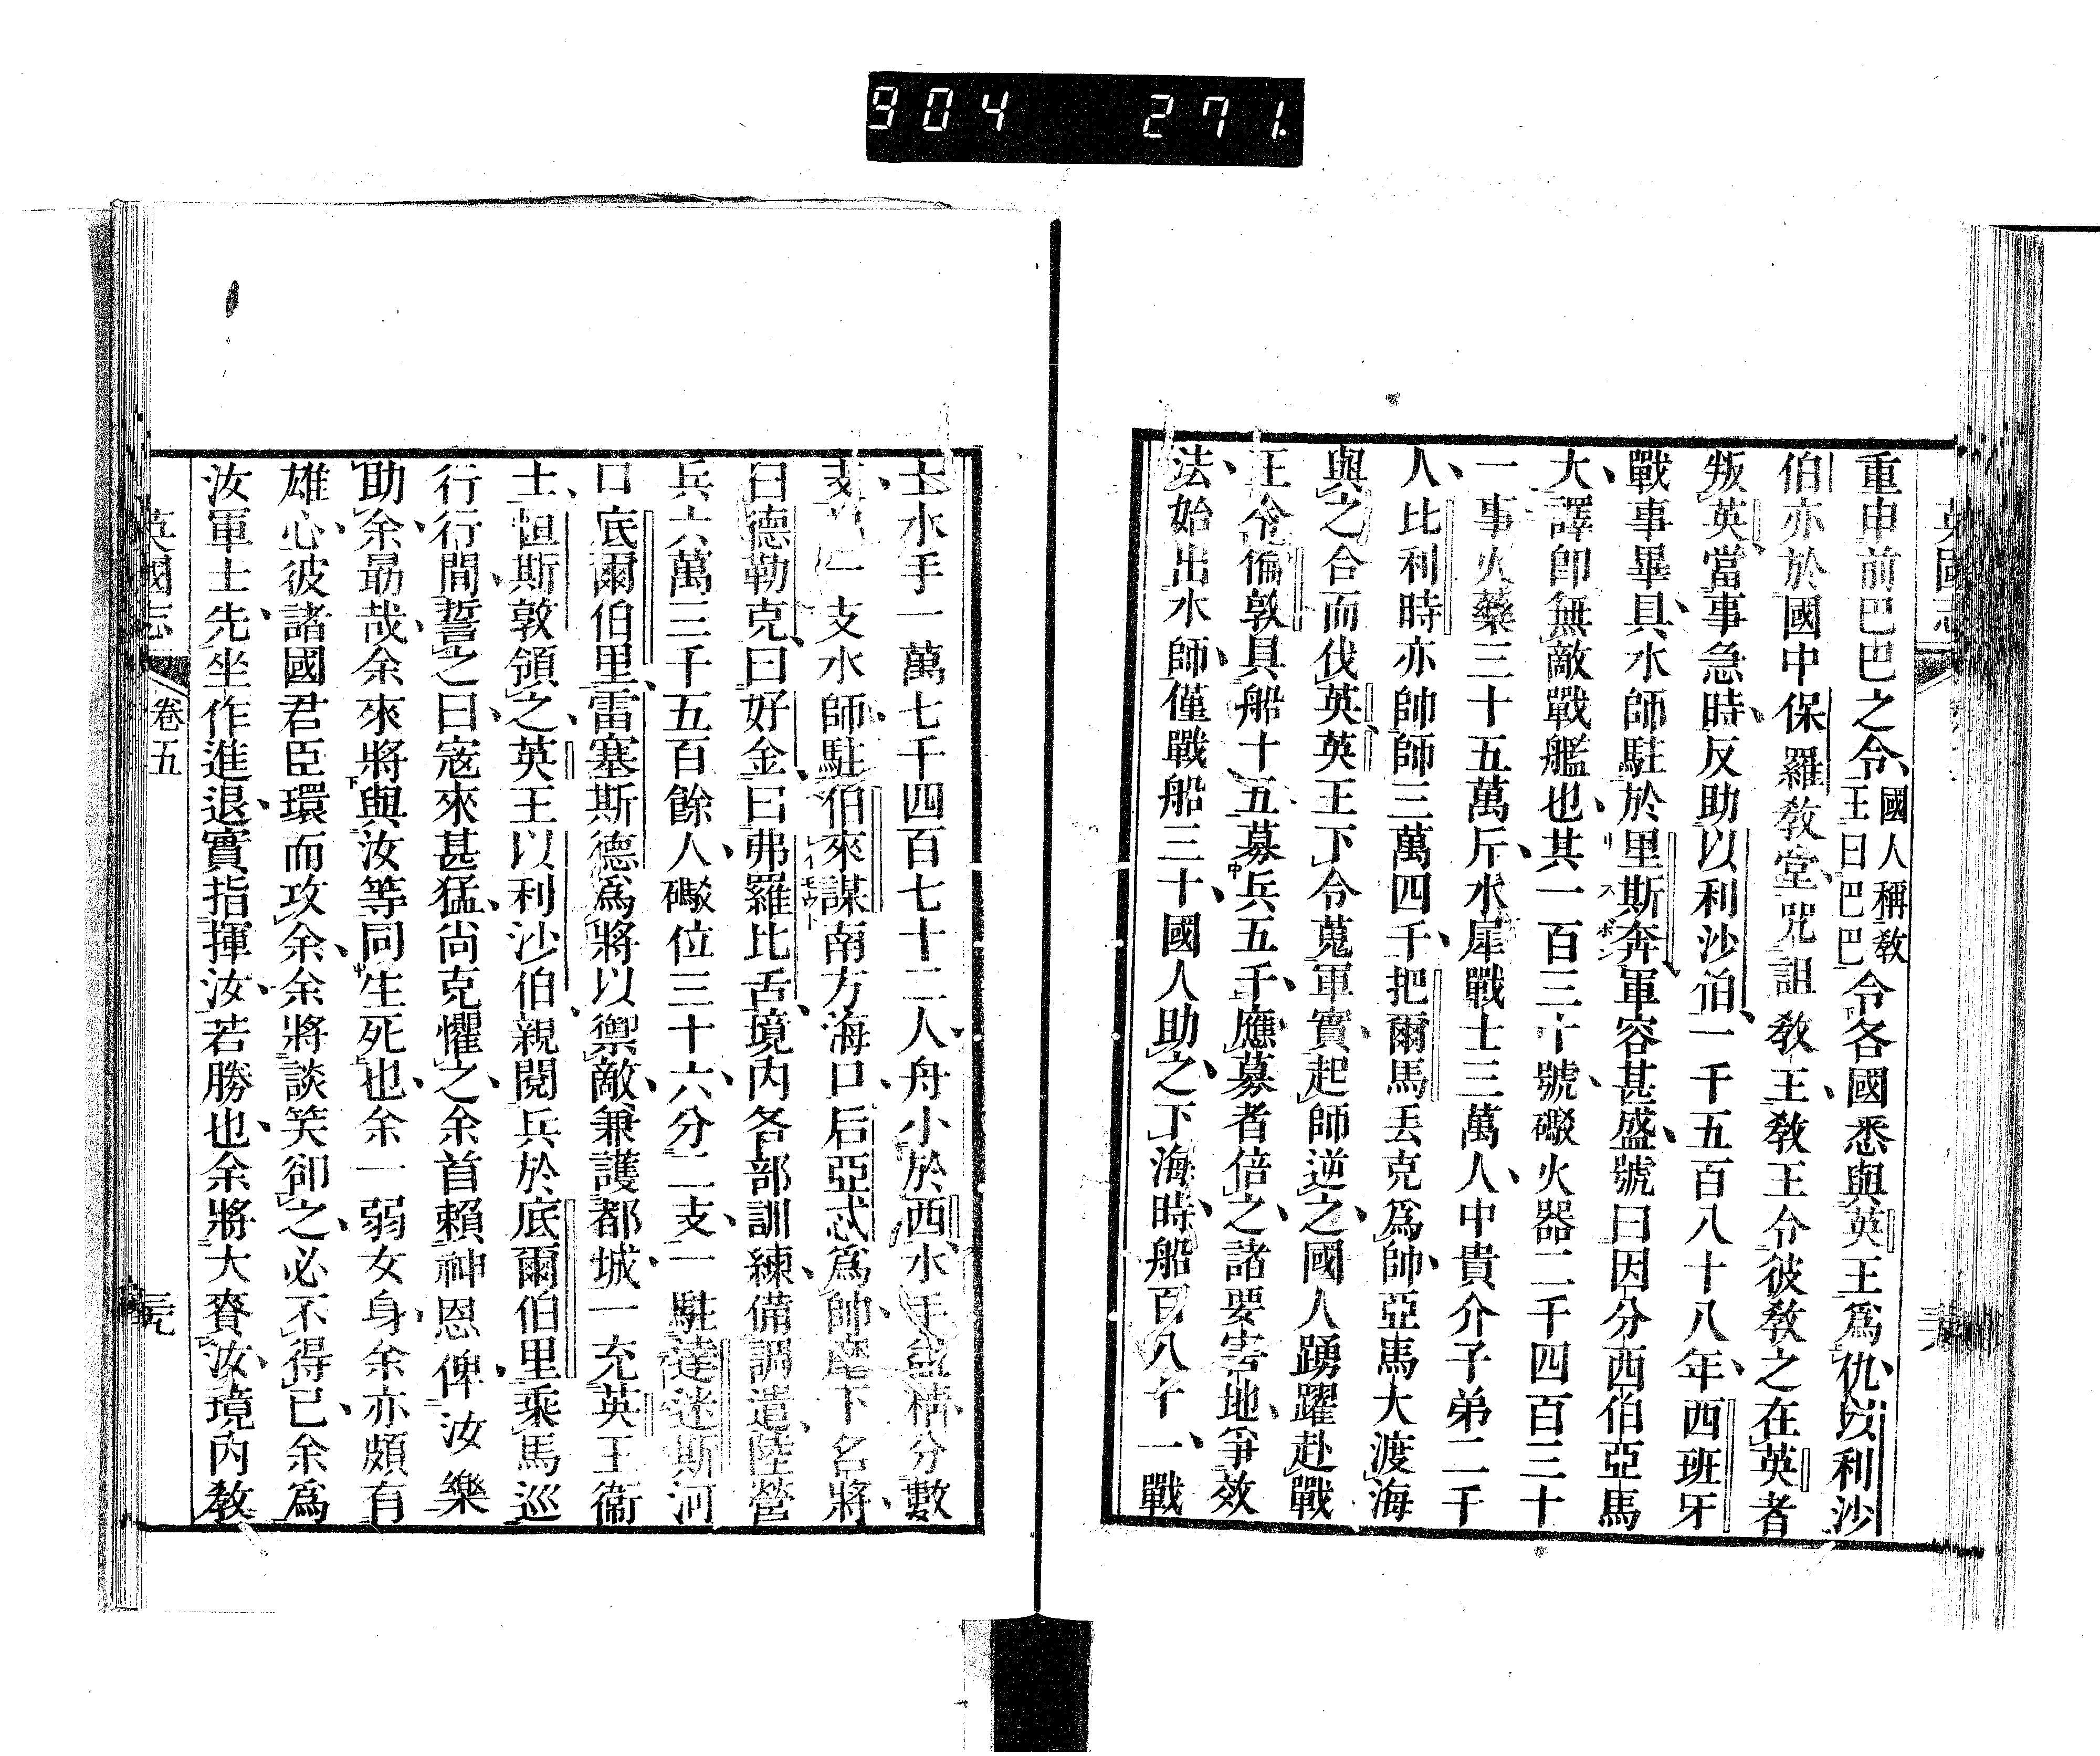 904 271.
英國志
重申前巴巴之令國人稱教王曰巴巴令各國悉與英王爲仇以利沙
伯亦於國中保羅教堂咒詛教王教王令彼教之在英者
叛英當事急時反助以利沙伯一千五百八十八年西班牙
戰事畢具水師駐於里斯奔軍容甚盛號曰因分西伯亞馬
リスボン
大譯卽無敵戰艦也其一百三十號礮火器二千四百三十
一事火藥三十五萬斤水犀戰士三萬人中貴介子弟二千
人比利時亦帥師三萬四千把爾馬丟克爲帥亞馬大渡海
與之合而伐英英王下令蒐軍實起師逆之國人踴躍赴戰
王令倫敦具船十五募兵五千應募者倍之諸要害地爭效
法始出水師僅戰船三十國人助之下海時船百八十一戰
士水手一萬七千四百七十二人舟小於西水手盆構分數
支一支水師駐伯來謀南方海口后亞忒爲帥麾下名將
曰德勒克曰好金曰弗羅比舌境內各部訓練備調遣陸營
兵六萬三千五百餘人礮位三十六分二支一駐達迷斯河
口底爾伯里雷塞斯德爲將以禦敵兼護都城一充英王衞
士恒斯敦領之英王以利沙伯親閱兵於底爾伯里乘馬巡
行行間誓之曰寇來甚猛尙克懼之余首賴神恩俾汝樂
助余勗哉余來將與汝等同生死也余一弱女身余亦頗有
雄心彼諸國君臣環而攻余余將談笑卻之必不得已余爲
汝軍士先坐作進退實指揮汝若勝也余將大賚汝境內教
英國志 卷五